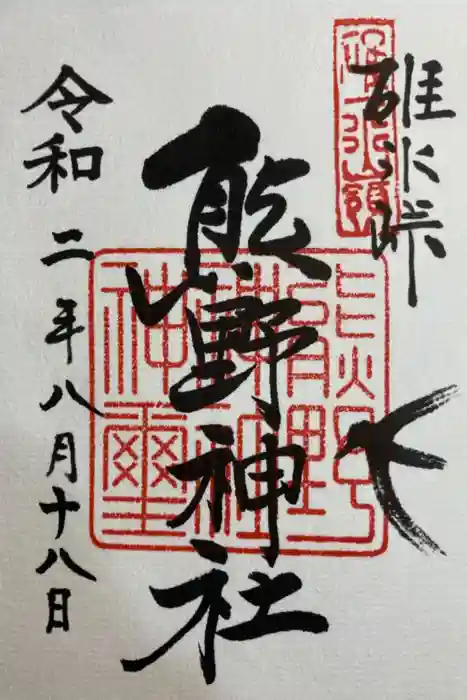 碓氷峠
熊野神社
令和二年八月十八日
熊野
神社
神璽